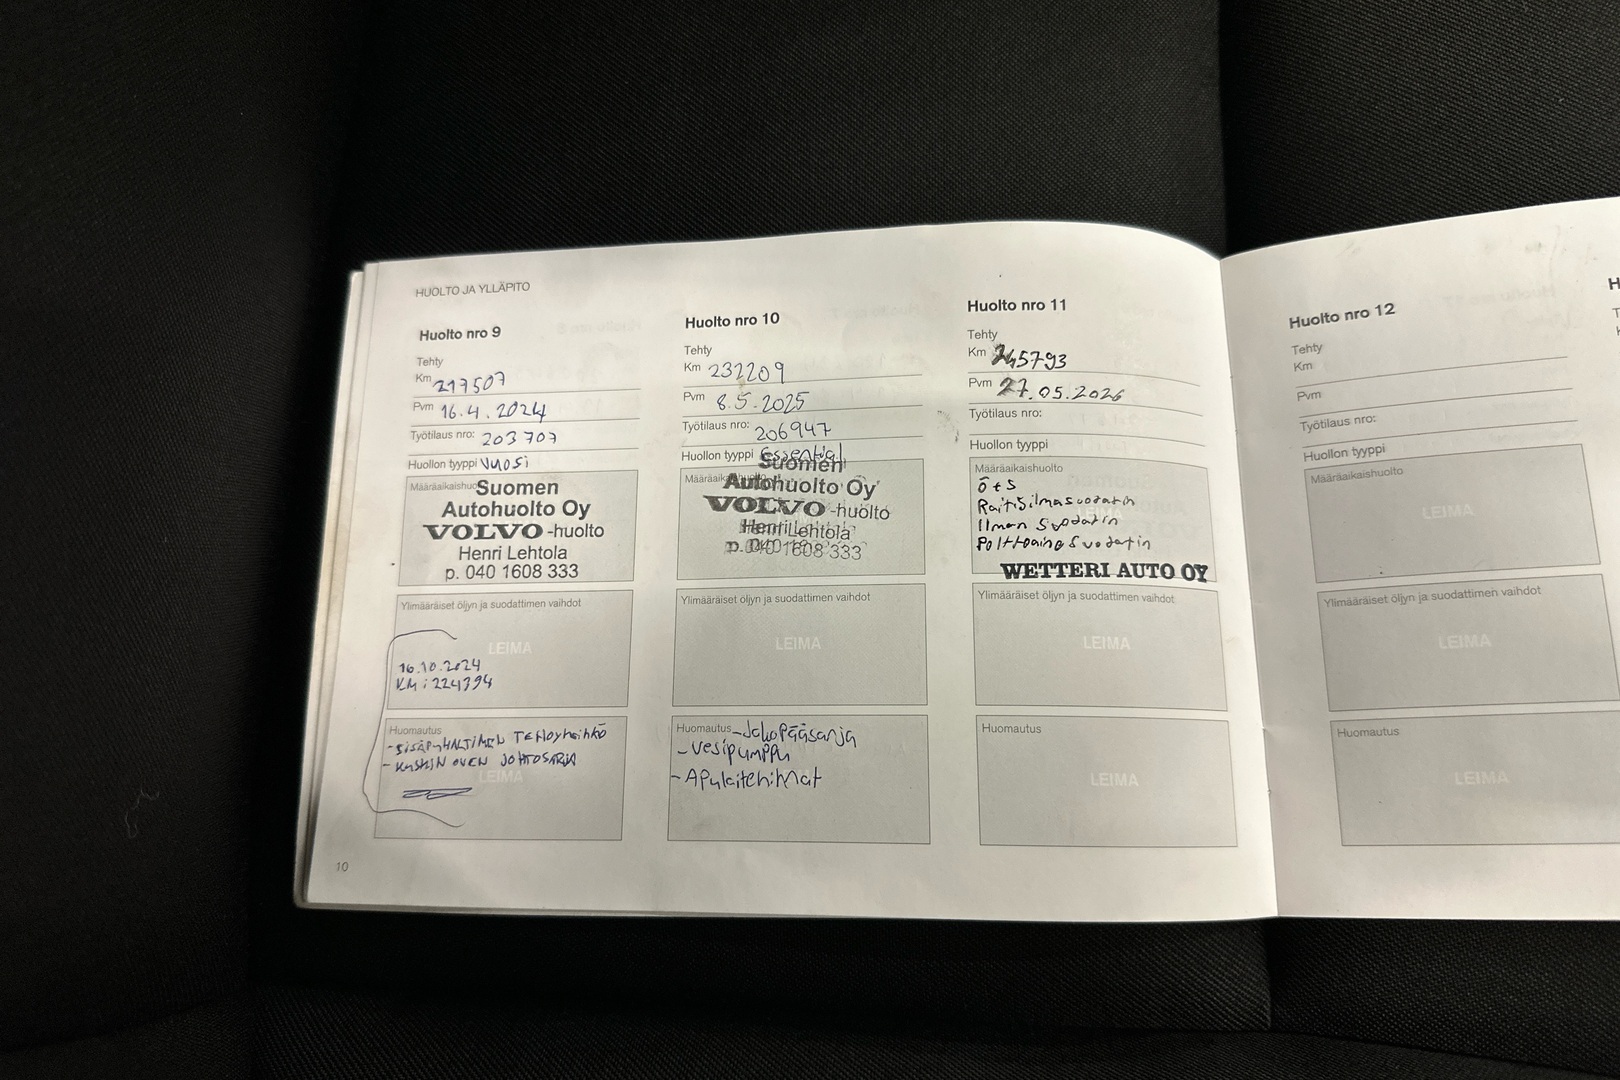 HUOLTO JA YLLÄPITO
Huolto nro 9
Tehty
Km 217507
Pvm 16.4.2024
Työtilaus nro: 203707
Huollon tyyppi Vuosi
Suomen
Autohuolto Oy
VOLVO -huolto
Henri Lehtola
p. 040 1608 333
Ylimääräiset öljyn ja suodattimen vaihdot
LEIMA
16.10.2024
KM: 224394
Huomautus
- KUSKIN OVEN JOHTOSARJA
LEIMA
10
Huolto nro 10
Tehty
Km 232209
Pvm 8.5.2025
Työtilaus nro: 206947
Huollon tyyppi Essential
Suomen
Autohuolto Oy
VOLVO -huolto
Henri Lehtola
p. 040 1608 333
Ylimääräiset öljyn ja suodattimen vaihdot
LEIMA
Huomautus - Jakopääsarja
- Vesipumppu
- Apulaitehihnat
Huolto nro 11
Tehty
Km 245793
Pvm 27.05.2026
Työtilaus nro:
Huollon tyyppi
Määräaikaishuolto
ö+s
Raitisilmasuodatin
Ilman Suodatin
Polttoaine Suodatin
WETTERI AUTO OY
Ylimääräiset öljyn ja suodattimen vaihdot
LEIMA
Huomautus
LEIMA
Huolto nro 12
Tehty
Km
Pvm
Työtilaus nro:
Huollon tyyppi
Määräaikaishuolto
LEIMA
Ylimääräiset öljyn ja suodattimen vaihdot
LEIMA
Huomautus
LEIMA